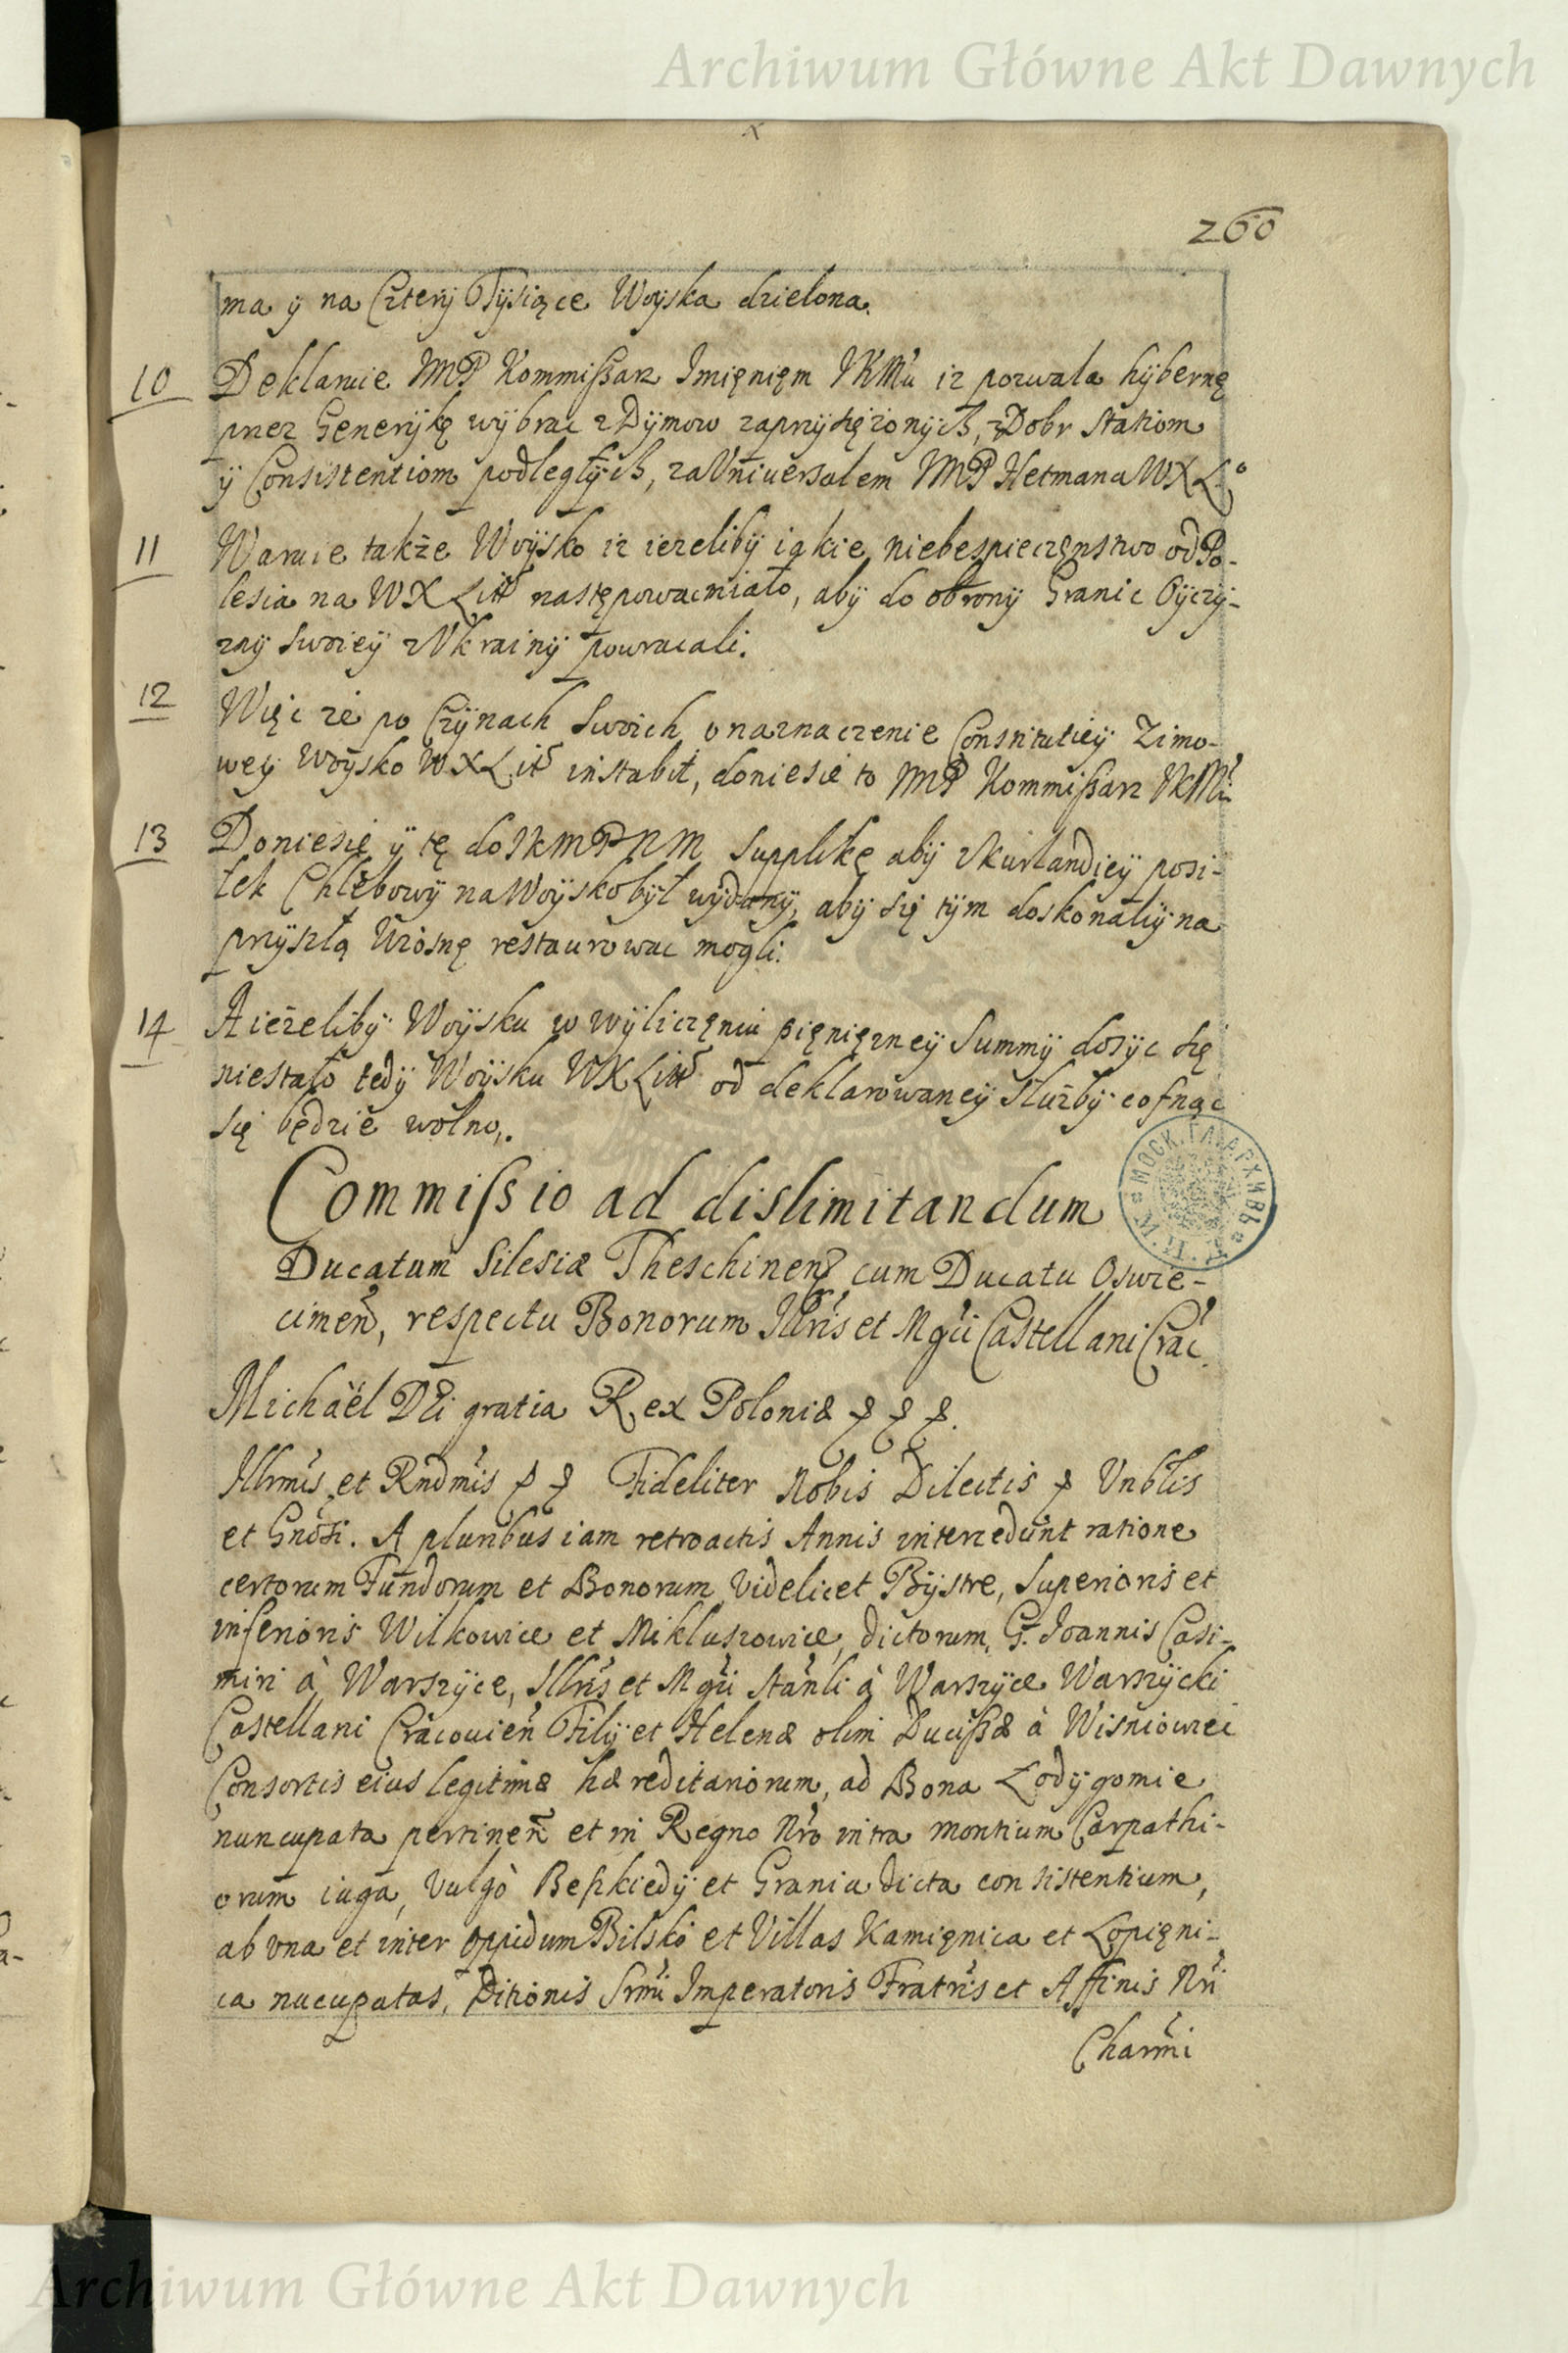 Archiwum Główne Akt Dawnych
260
ma y na Cztery Tysiące Woyska dzielona.
10 Deklaruie JMP Kommissarz Jmięnięm JKMci iz pozwala hybernę
przez Generykę wybrac z Dymow zaprzysięzonych, z Dobr Station
y Consistentiom podległych, za Vniuersalem JMP Hetmana WXL°
11 Waruie także Woysko iz iezeliby iakie niebespieczęnstwo od Po-
lesia na WXLitt następowac miało, aby do obrony Granic Oyczy-
zny Swoiey z Vkrainy powracali.
12 Więc ze po Czynach Swoich o naznaczenie Constitutiey Zimo-
wey Woysko WXLitt instabit, doniesie to JMP Kommissarz JKMci
13 Doniesie y tę do JKMPNM Supplikę aby z Kurlandiey posi-
łek Chlebowy na Woysko był wydany, aby się tym doskonaliy na
przyszłą Wiosnę restaurowac mogli.
14 A ieżeliby Woysku w wyliczęniu pięnięzney Summy dosyc się
niestało tedy Woysku WXLitt od deklarowaney służby cofnąc
się będzie wolno.
Commissio ad dislimitandum
Ducatum Silesiæ Theschinen cum Ducatu Oswie-
cimen, respectu Bonorum Illris et Mgci Castellani Crac.
Michaël Dei gratia Rex Poloniæ
Illrmis et Rndmis Fideliter Nobis Dilectis Vnblis
et Gnosi. A pluribus iam retroactis Annis intercedunt ratione
certorum Fundorum et Bonorum Videlicet Bystre, Superioris et
inferioris Wilkowice et Mikluszowice, dictorum, G. Joannis Casi-
miri à Warszyce, Illris et Mgci Stanli à Warszyce Warszycki
Castellani Cracouien Filij et Helenæ olim Ducissæ à Wisniowiec
Consortis eius legitimæ hæreditariorum, ad Bona Łodygowie
nuncupata pertinen et in Regno Nro intra montium Carpathi-
orum iuga, Vulgò Beskiedy et Grania dicta consistentium,
ab vna et inter oppidum Bilsko et Villas Kamięnica et Lopięni-
ca nucupatas, Ditionis Srmi Imperatoris Fratris et Affinis Nri
Charmi
Archiwum Główne Akt Dawnych